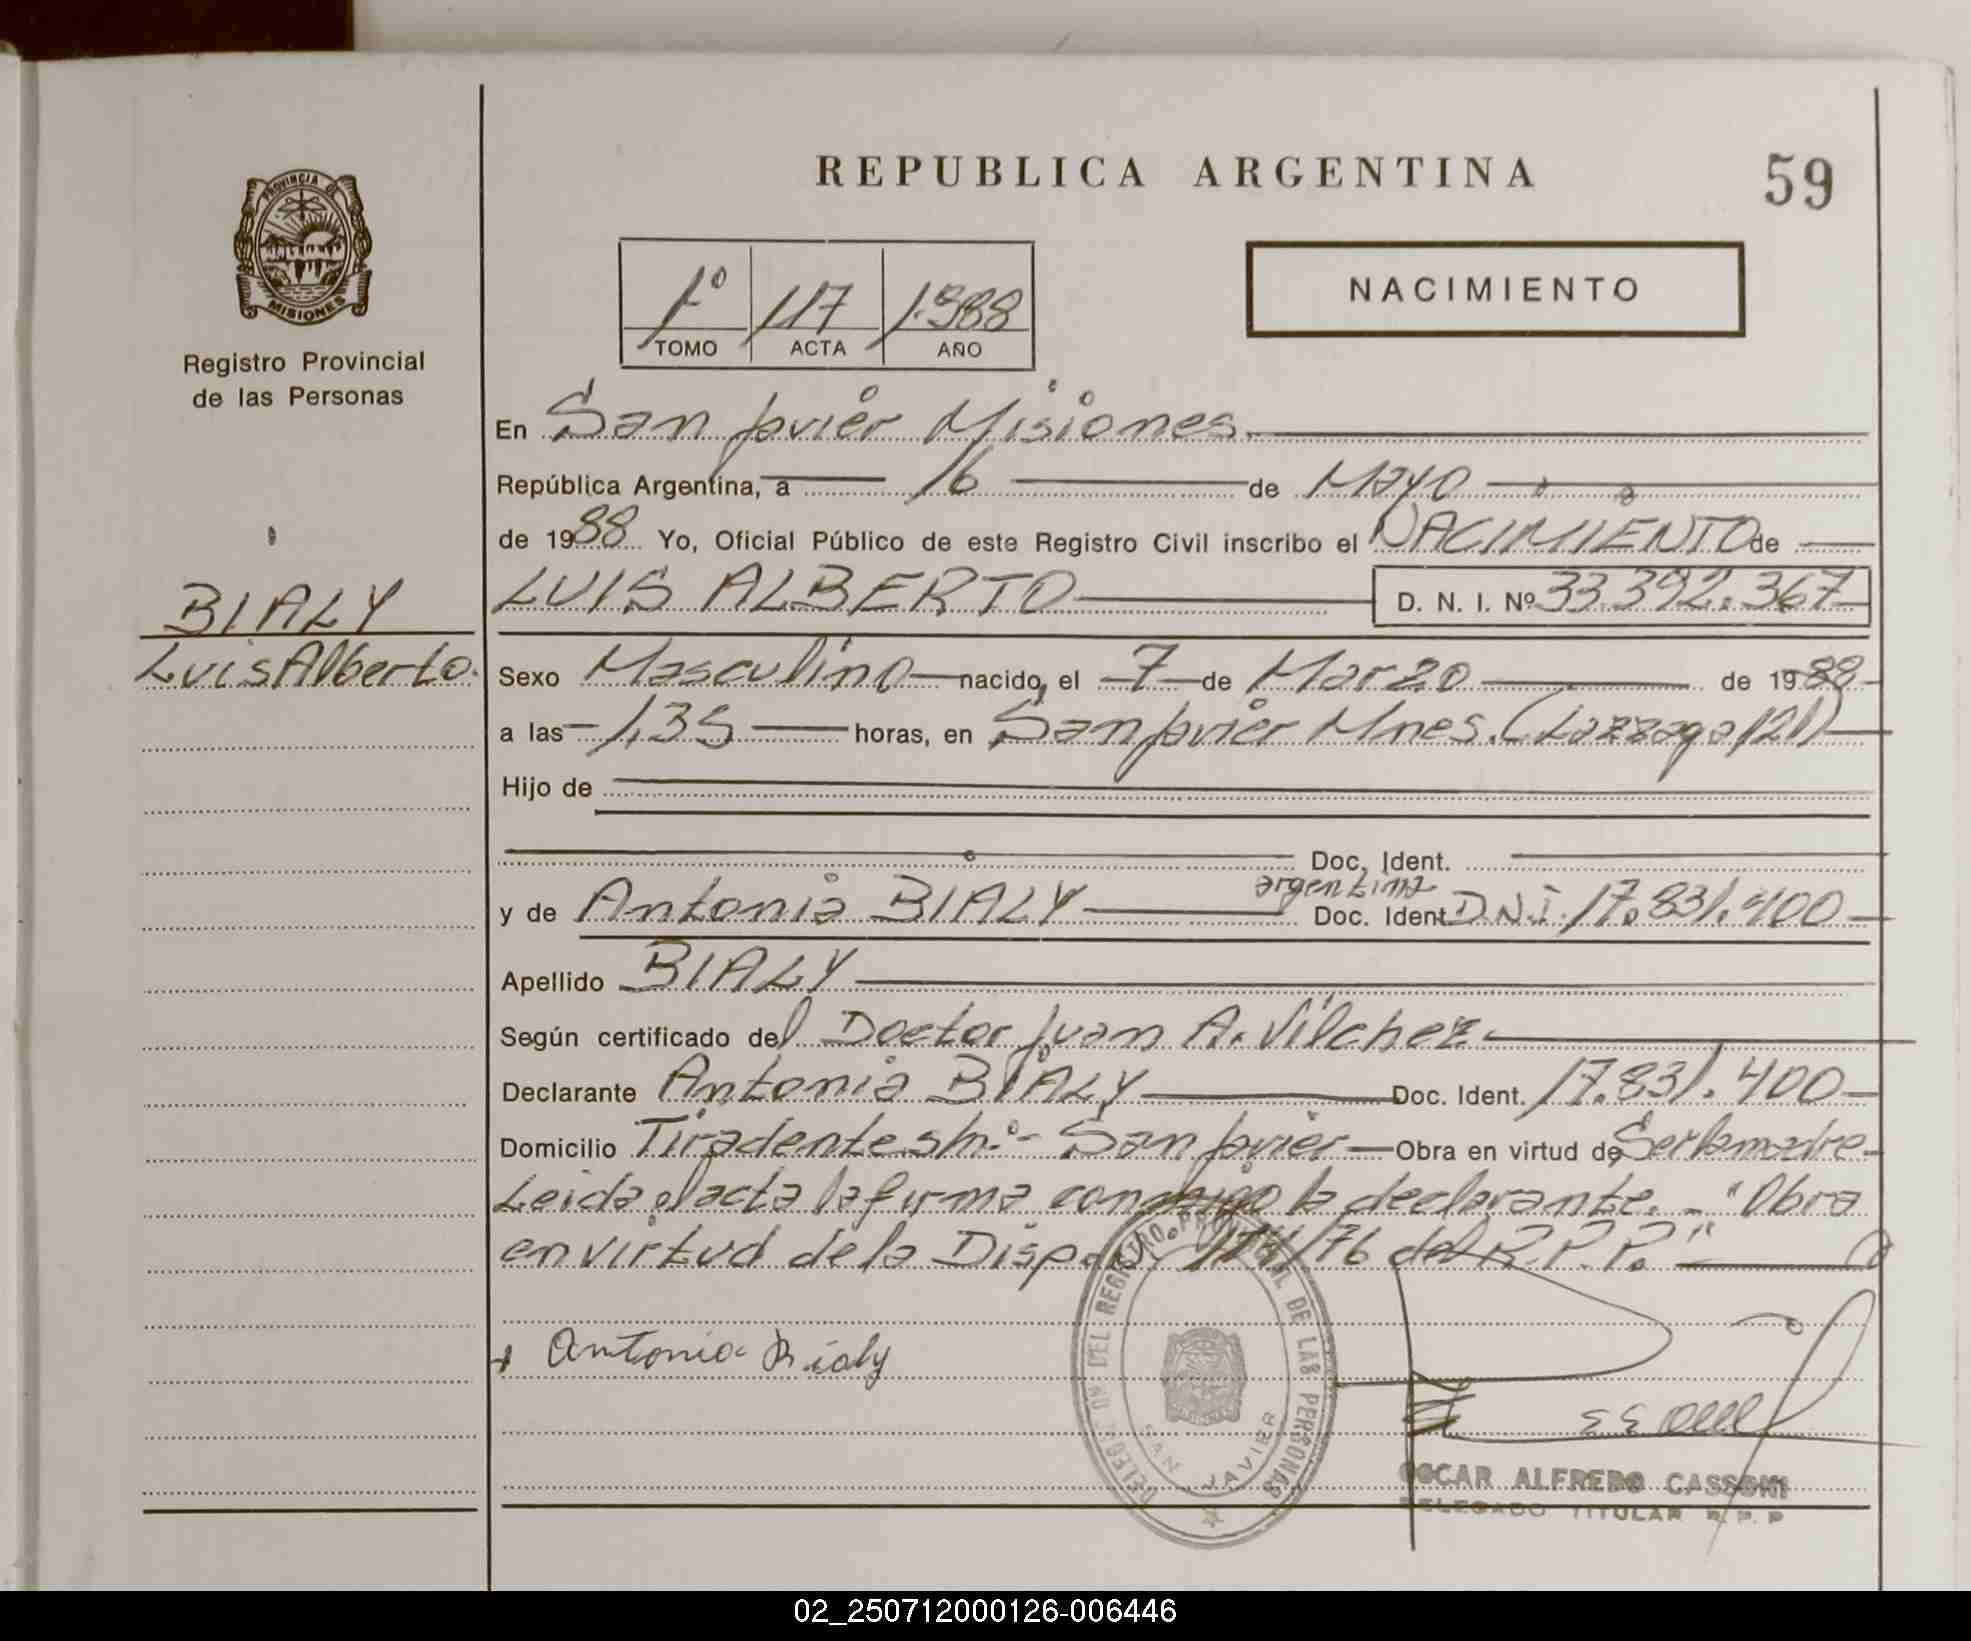 REPUBLICA ARGENTINA
59
PROVINCIA DE MISIONES
Registro Provincial
de las Personas
1º 117 1.988
TOMO ACTA AÑO
NACIMIENTO
En San Javier Misiones.
República Argentina, a 16 de Mayo
de 1988 Yo, Oficial Público de este Registro Civil inscribo el NACIMIENTO de
LUIS ALBERTO D. N. I. Nº 33.392.367
BIALY
Luis Alberto.
Sexo Masculino nacido, el 7 de Marzo de 1988
a las 1,35 horas, en San Javier Mnes. (Lazzaga 121)
Hijo de
Doc. Ident.
argentina
y de Antonia BIALY Doc. Ident. D.N.I. 17.831.400
Apellido BIALY
Según certificado del Doctor Juan A. Vilchez
Declarante Antonia BIALY Doc. Ident. 17.831.400
Domicilio Tiradentes s/nº- San Javier Obra en virtud de Ser la madre
Leida el acta la firma conmigo la declarante. - "Obra
en virtud de la Dispos. /76 del R.P.P."
Antonia Bialy
DELEGACION DEL REGISTRO PROVINCIAL DE LAS PERSONAS
SAN JAVIER
OSCAR ALFREDO CASSONI
DELEGADO TITULAR R. P. P
02_250712000126-006446